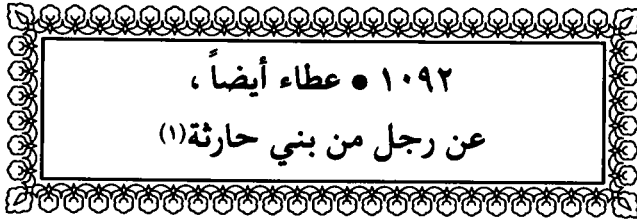 ١٠٩٢ ● عطاء أيضاً ،
عن رجل من بني حارثة(١)